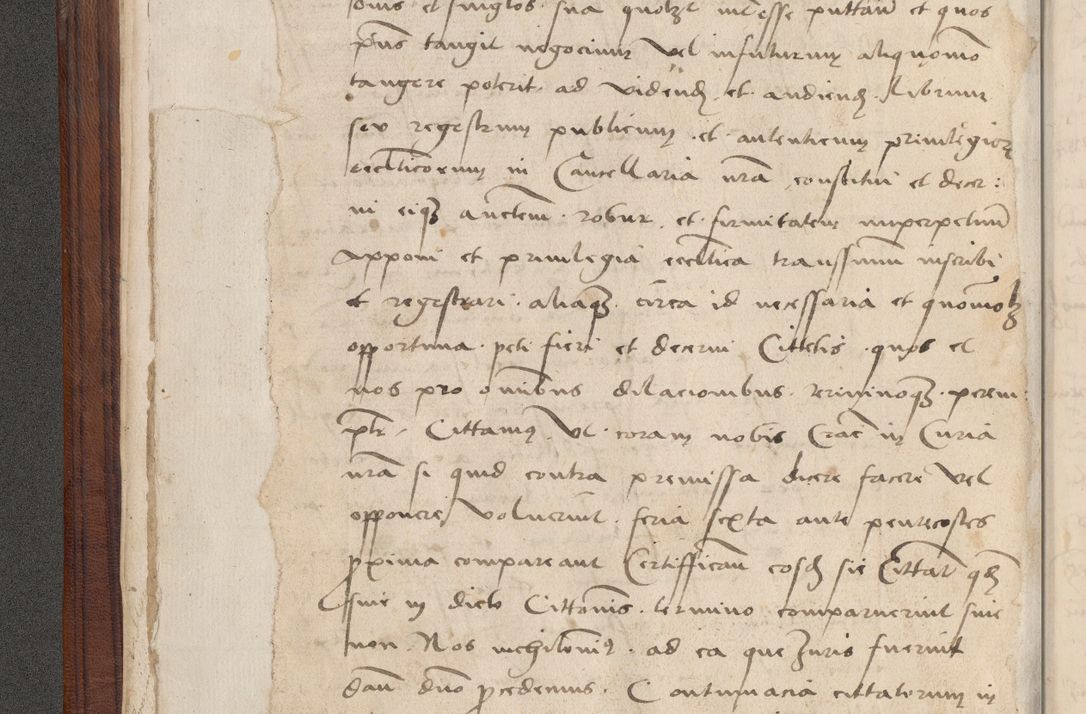 omnes et singlos sua quolzt intesse puttan et quos
pns tangit negocium vel infuturum aliquomo
tangere poterit ad videnđ et audienđ librum
seu regestrum publicum et autenticum privilegiorʒ
ecclticorum in Cancellaria nra constitui et decer:
ni eiqʒ auctem robur et firmitatem imperpetuum
apponi et privilegia eccltica transsumi inscribi
et regestrari aliaqʒ circa id necessaria et quomolʒ
opportuna peti fieri et decerni Cittetis quos et
nos pro omnibus dilacionibus terminoqʒ perem
ptr Cittamus vt coram nobis Crac in Curia
nra si quid contra premissa dicere facere vel
opponere voluerint feria sexta ante pentecostes
proxima compareant Certifficau eosđ sic Cittat qđ
siue in dicto Cittonis termino comparuerint siue
non Nos nichilomis ad ea que Juris fuerint
dau duo procedemus Contumacia cittatorum in